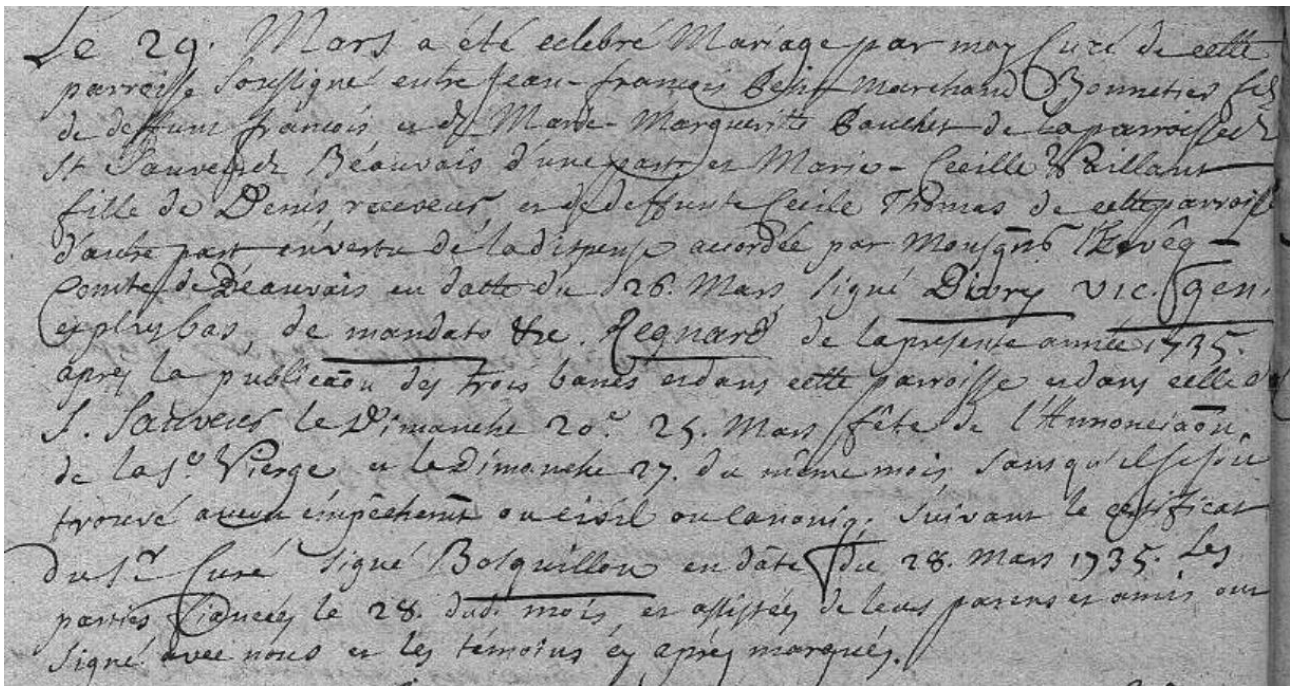 Le 29. Mars a été celebré Mariage par moy Curé de cette
parroisse soussigné entre Jean-francois Marchand Bonnetier fils
de deffunt francois et de Marie-Margueritte Bouchet de la parroisse de
St Sauveur de Béauvais d'une part, et Marie-Cecille Vaillant
fille de Denis, receveur, et de deffunte Cecile Thomas de cette parroisse
d'autre part en vertu de la dispense accordée par Monsgnr l'Evêq-
Comte de Béauvais en datte du 26. Mars, signé Divry vic. gen.
et plus bas, de mandato &c. Regnard de la presente année 1735.
aprés la publicaōn des trois bancs et dans cette parroisse et dans celle de
S. Sauveur le Dimanche 20.e 25. Mars fête de l'Annonciaōn
de la Se. Vierge et le Dimanche 27. du même mois, sans qu'il se soit
trouvé aucun émpêchemt ou civil ou canoniq. suivant le certificat
du Sr. Curé signé Bosquillon en dâte du 28. Mars 1735. Les
parties fiancées le 28. dud. mois, et assistées de leurs parens et amis ont
signé avec nous et les témoins cy aprés marqués.